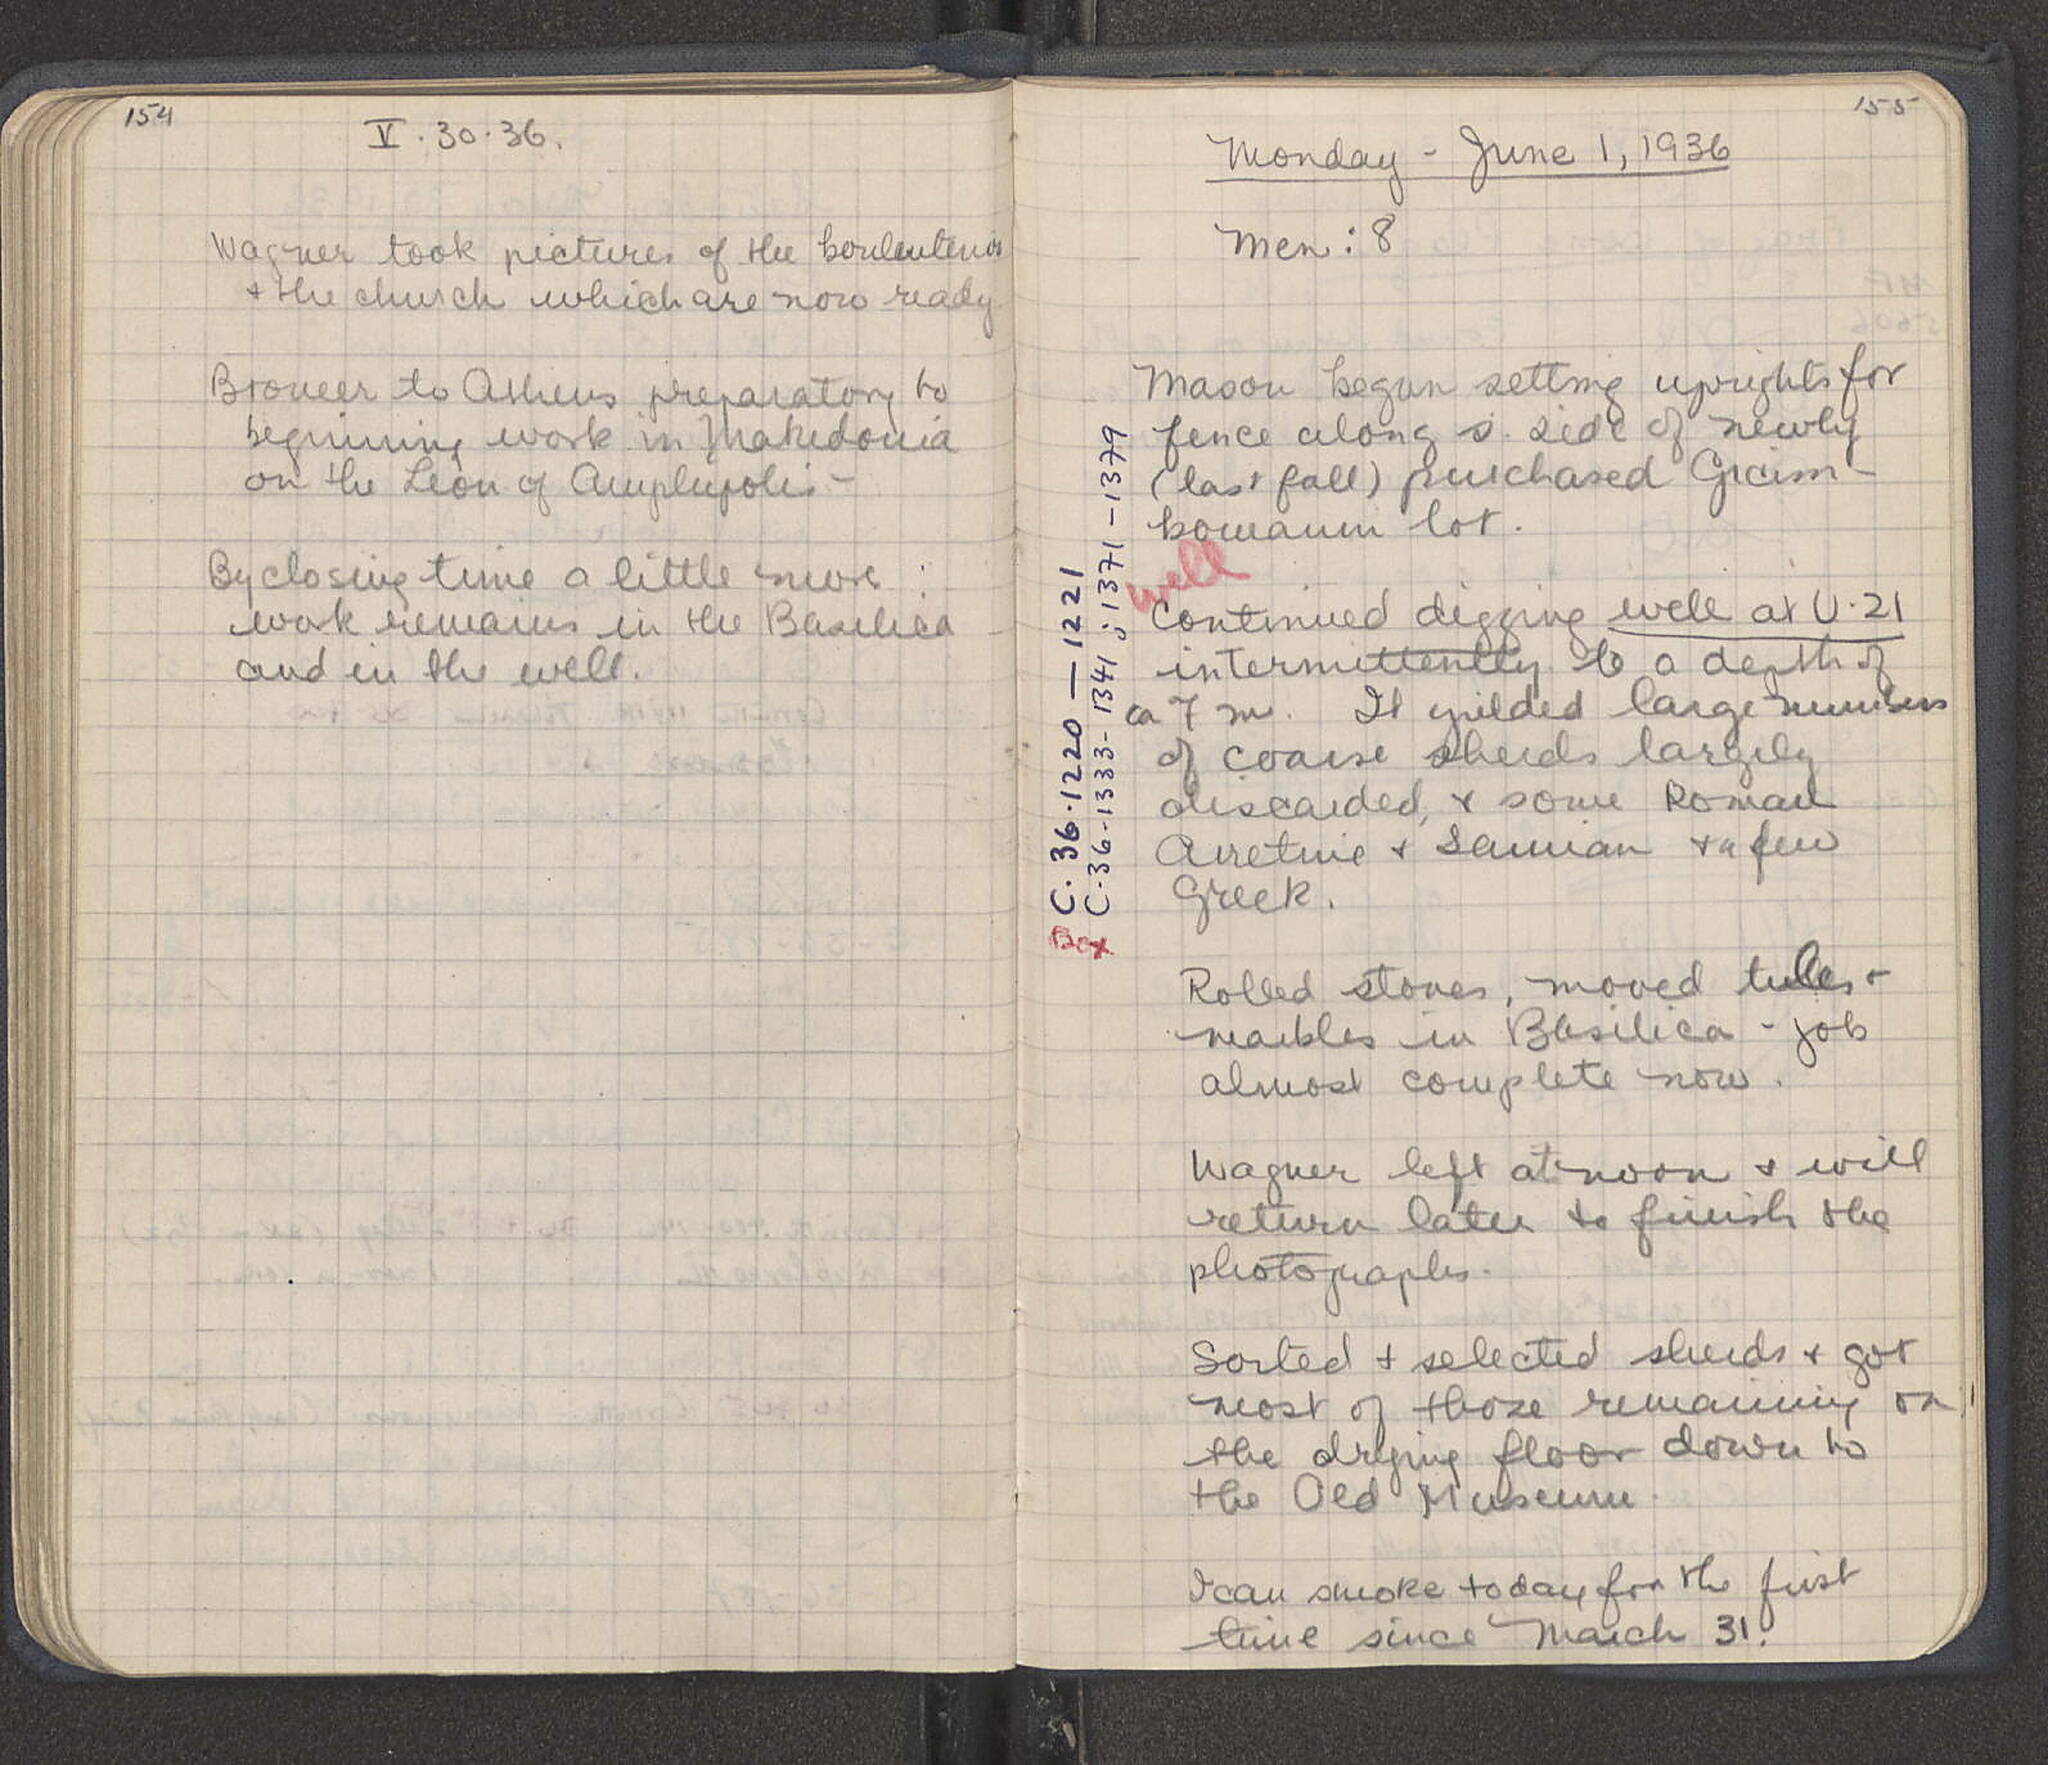 154
V·30·36.
Wagner took pictures of the bouleuterion
+ the church which are now ready
Broneer to Athens preparatory to
beginning work in Makedonia
on the Leon of Amphipolis -
By closing time a little more
work remains in the Basilica
and in the well.
155
Monday - June 1, 1936
Men: 8
Mason began setting uprights for
fence along s. side of newly
(last fall) purchased
lot.
well
Continued digging well at U·21
intermittently to a depth of
ca 7 m. It yielded large numbers
of coarse sherds largely
discarded, & some Roman
Arretine + Samian + a few
Greek.
Box C·36·1220 — 1221
C·36-1333-1341; 1371-1379
Rolled stones, moved tiles +
marbles in Basilica - job
almost complete now.
Wagner left at noon & will
return later to finish the
photographs.
Sorted + selected sherds + got
most of those remaining on
the drying floor down to
the Old Museum.
I can smoke today for the first
time since March 31.